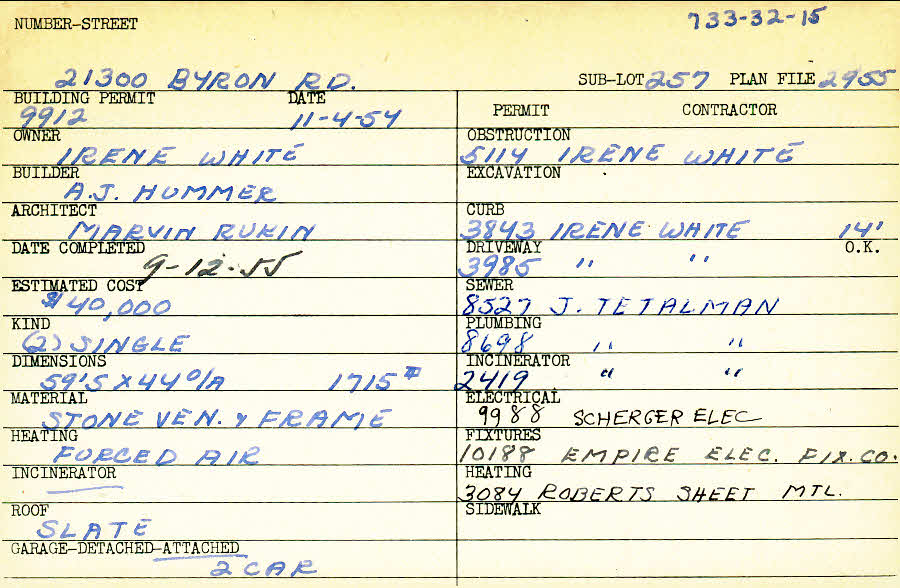 733-32-15
NUMBER-STREET
21300 BYRON RD. SUB-LOT 257 PLAN FILE 2955
BUILDING PERMIT DATE
9912 11-4-54
OWNER
IRENE WHITE
BUILDER
A.J. HUMMER
ARCHITECT
MARVIN RUKIN
DATE COMPLETED
9-12-55
ESTIMATED COST
$40,000
KIND
(2) SINGLE
DIMENSIONS
59'5 X 44 O/A 1715 #
MATERIAL
STONE VEN. & FRAME
HEATING
FORCED AIR
INCINERATOR
ROOF
SLATE
GARAGE-DETACHED-ATTACHED
2 CAR
PERMIT CONTRACTOR
OBSTRUCTION
5114 IRENE WHITE
EXCAVATION
CURB
3843 IRENE WHITE 14'
DRIVEWAY O.K.
3985 " "
SEWER
8527 J. TETALMAN
PLUMBING
8698 " "
INCINERATOR
2419 " "
ELECTRICAL
9988 SCHERGER ELEC
FIXTURES
10188 EMPIRE ELEC. FIX. CO.
HEATING
3084 ROBERTS SHEET MTL.
SIDEWALK